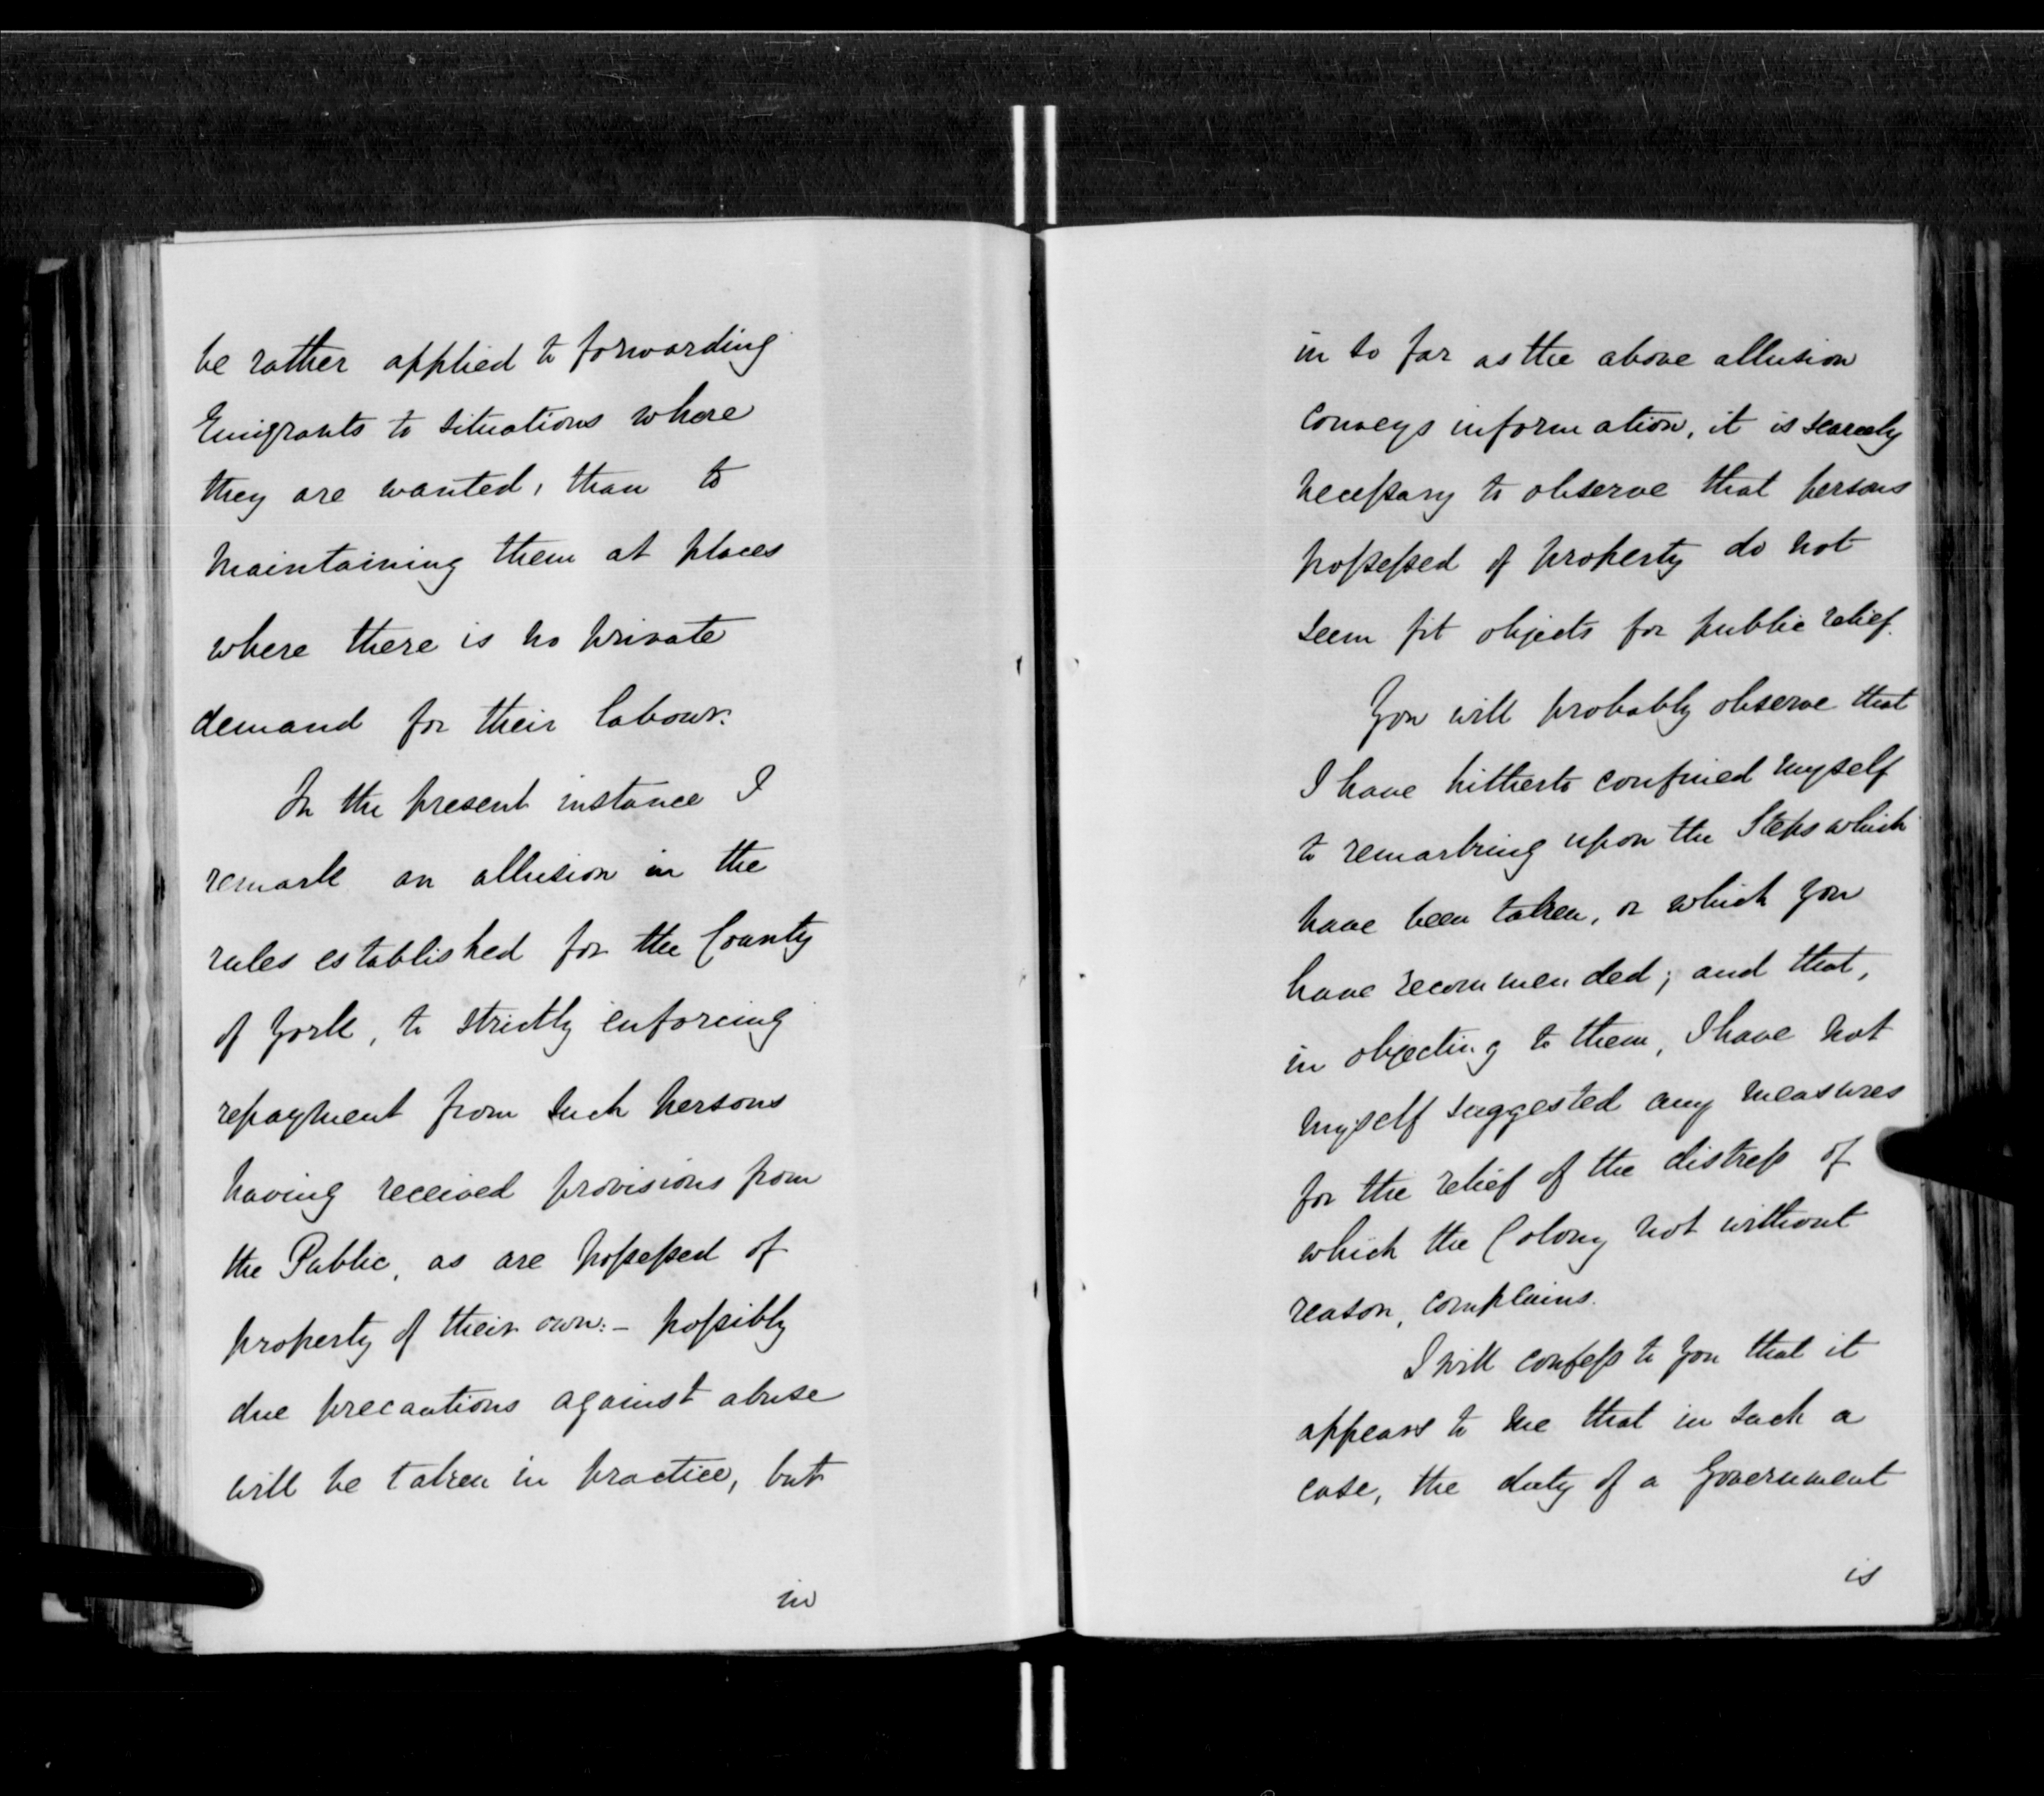 be rather applied to forwarding
Emigrants to situations where
they are wanted, than to
maintaining them at places
where there is no private
demand for their labour.
In the present instance I
remark an allusion in the
rules established for the County
of York, to strictly enforcing
repayment from such persons
having received provisions from
the Public, as are possessed of
property of their own:- possibly
due precautions against abuse
will be taken in practice, but
in
in so far as the above allusion
conveys information, it is scarcely
necessary to observe that persons
possessed of property do not
seem fit objects for public relief.
You will probably observe that
I have hitherto confined myself
to remarking upon the Steps which
have been taken, or which you
have recommended; and that,
in objecting to them, I have not
myself suggested any measures
for the relief of the distress of
which the Colony not without
reason, complains.
I will confess to you that it
appears to me that in such a
case, the duty of a Government
is